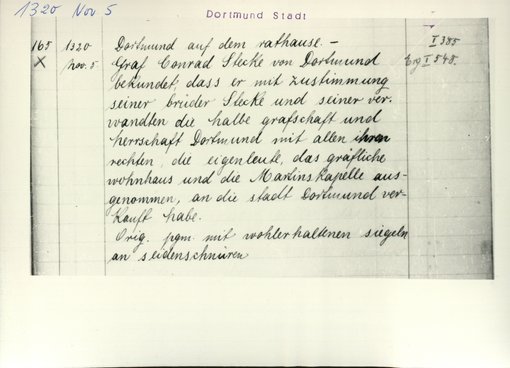 1320 Nov 5
Dortmund Stadt
165 1320 Dortmund auf dem rathause. – I 385
X Nov. 5 Graf Conrad Stecke von Dortmund Erg I 548.
bekundet, dass er mit zustimmung
seiner brüder Stecke und seiner ver-
wandten die halbe grafschaft und
herrschaft Dortmund mit allen ihren
rechten, die eigenleute, das gräfliche
wohnhaus und die Martinskapelle aus-
genommen, an die stadt Dortmund ver-
kauft habe.
Orig. pgm. mit wohlerhaltenen siegeln
an seidenschnüren